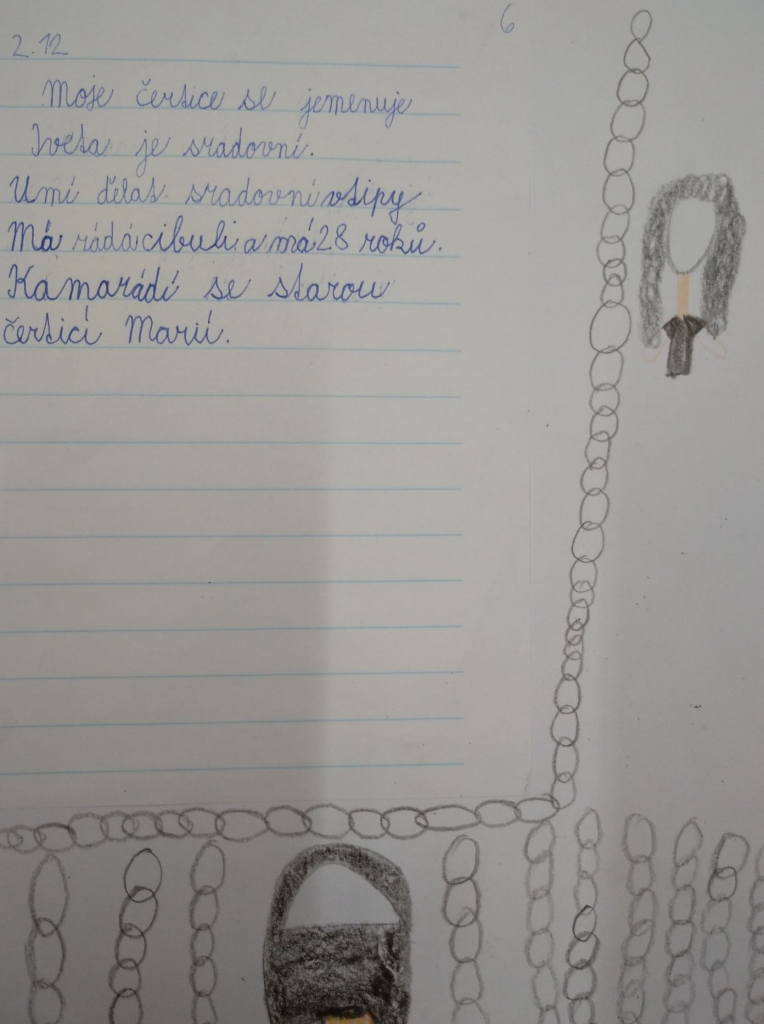 6
2.12
Moje čertice se jemenuje
Iveta je sradovní.
Umí dělat sradovní vtipy
Má rádá cibuli a má 28 roků.
Kamarádí se starou
čerticí Marií.